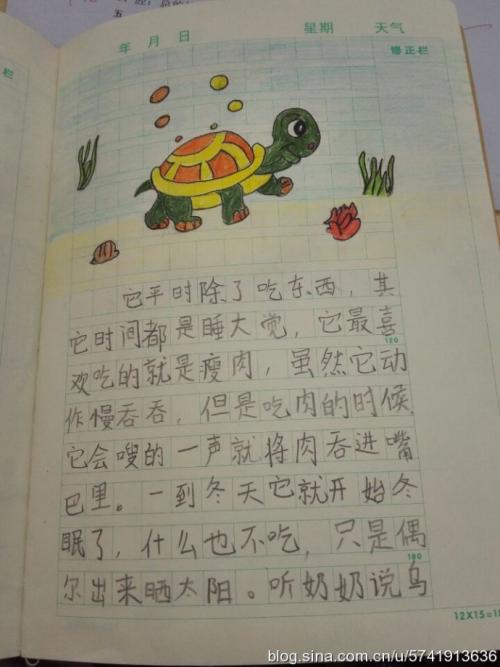 年 月 日 星期 天气
修正栏
栏
它平时除了吃东西，其
它时间都是睡大觉，它最喜
120
欢吃的就是瘦肉，虽然它动
作慢吞吞，但是吃肉的时候，
它会嗖的一声就将肉吞进嘴
巴里。一到冬天它就开始冬
眠了，什么也不吃，只是偶
180
尔出来晒太阳。听奶奶说乌
12X15=1
blog.sina.com.cn/u/5741913636